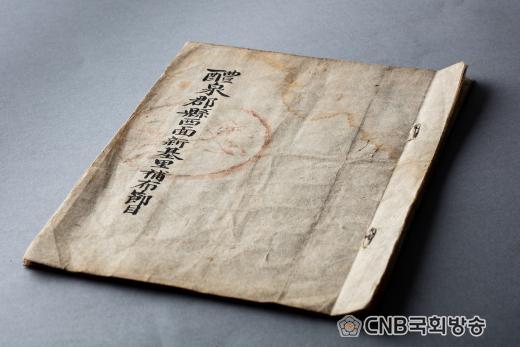 醴泉郡縣西面新基里補布節目
CNB국회방송